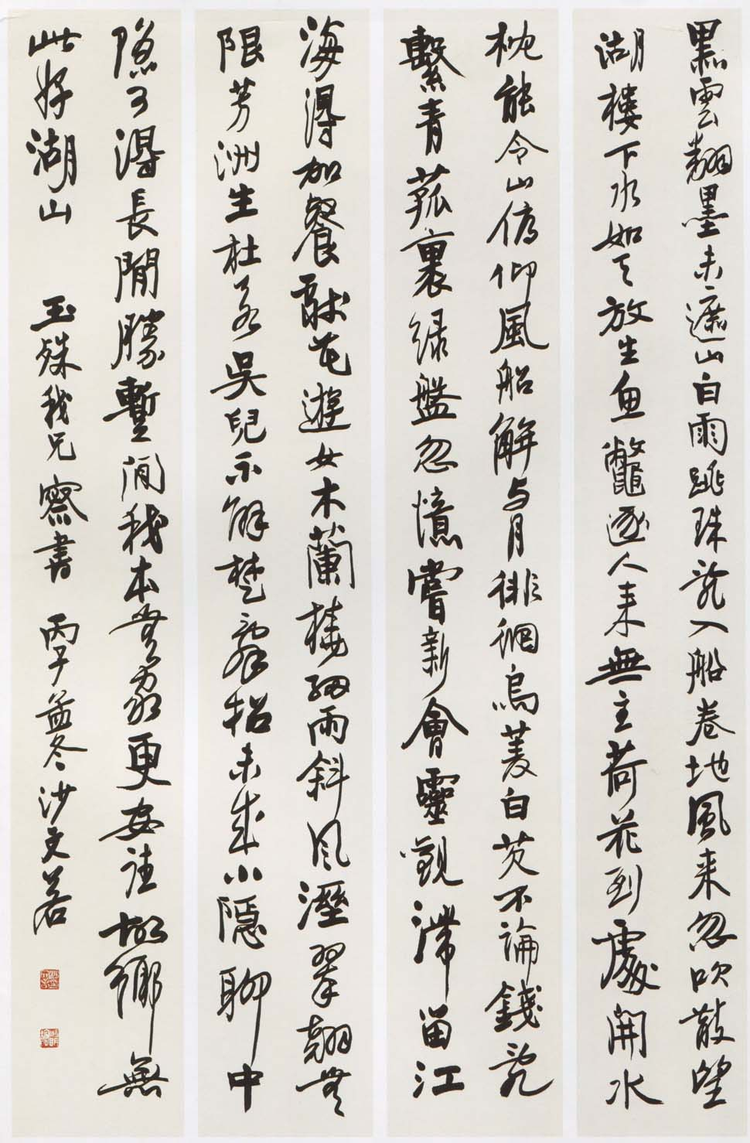 黑雲翻墨未遮山白雨跳珠亂入船卷地風来忽吹散望
湖樓下水如天放生魚鼈逐人来無主荷花到處開水
枕能令山俯仰風船解与月徘徊烏菱白芡不論錢亂
繫青菰裹綠盤忽憶嘗新會靈觀滯留江
海得加餐獻花遊女木蘭橈細雨斜風溼翠翹無
限芳洲生杜若吳兒不解楚辭招未成小隱聊中
隱可得長閒勝暫閒我本無家更安往故鄉無
此好湖山 玉殊我兄察書 丙子孟冬沙文若